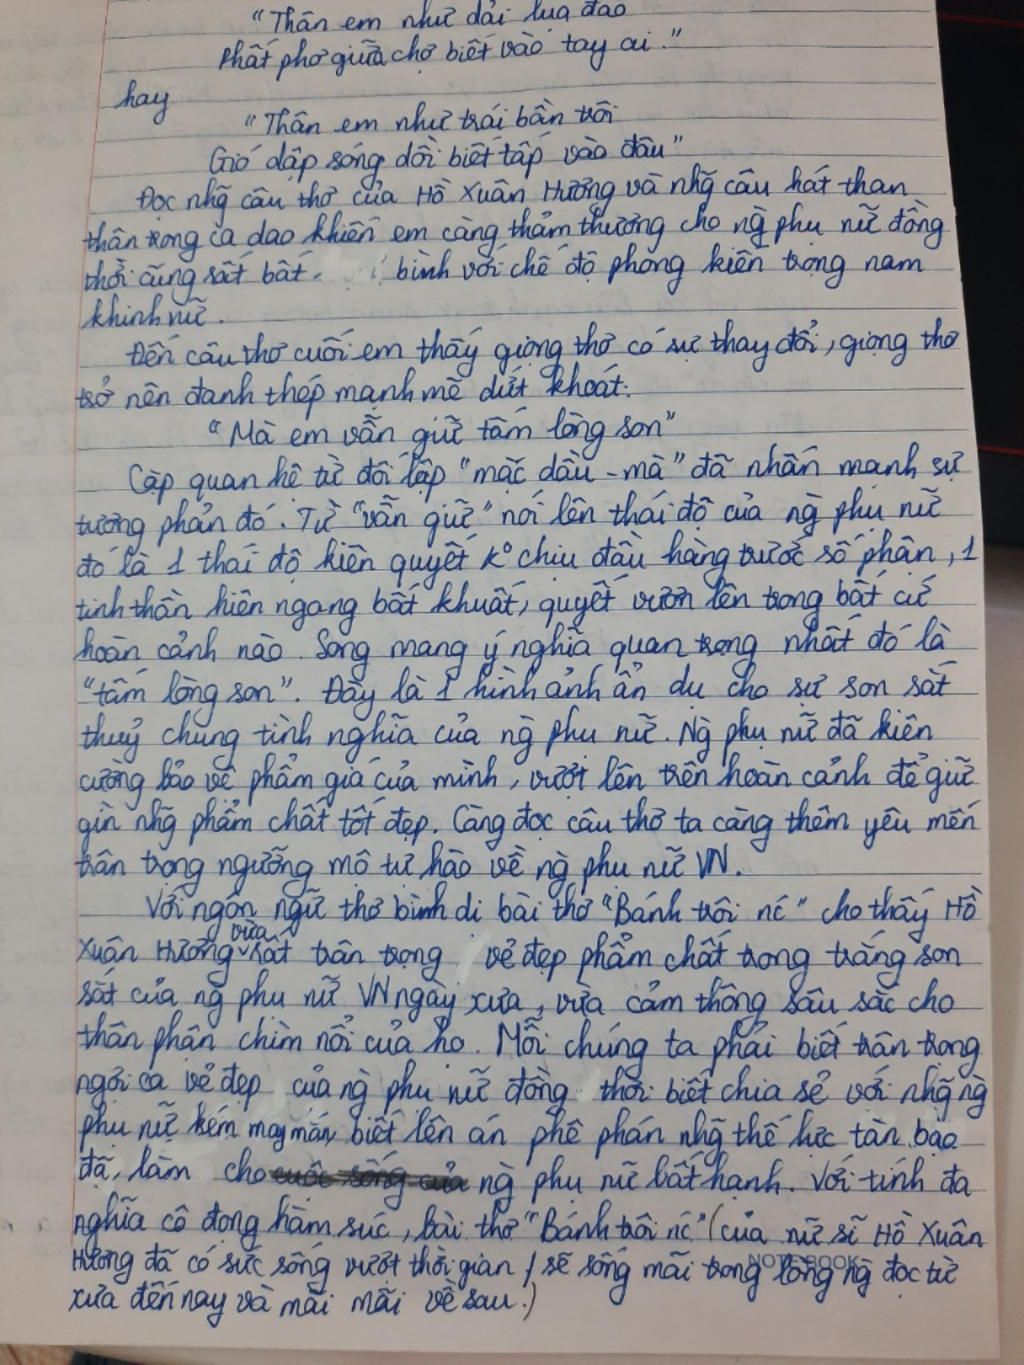 "Thân em như dải lụa đào
Phất phơ giữa chợ biết vào tay ai."
hay
"Thân em như trái bần trôi
Gió dập sóng dồi biết tấp vào đâu"
Đọc nhg̃ câu thơ của Hồ Xuân Hương và nhg̃ câu hát than
thân trong ca dao khiến em càng thảm thương cho ng̀ phụ nữ đồng
thời cũng sất bất. bình với chế độ phong kiến trọng nam
khinh nữ.
Đến câu thơ cuối em thấy giọng thơ có sự thay đổi, giọng thơ
trở nên đanh thép mạnh mẽ dứt khoát:
"Mà em vẫn giữ tấm lòng son"
Cặp quan hệ từ đối lập "mặc dầu - mà" đã nhấn mạnh sự
tương phản đó. Từ "vẫn giữ" nói lên thái độ của ng̀ phụ nữ
đó là 1 thái độ kiên quyết k° chịu đầu hàng trước số phận, 1
tinh thần hiên ngang bất khuất, quyết vươn lên trong bất cứ
hoàn cảnh nào. Song mang ý nghĩa quan trọng nhất đó là
"tấm lòng son". Đây là 1 hình ảnh ẩn dụ cho sự son sắt
thuỷ chung tình nghĩa của ng̀ phụ nữ. Ng̀ phụ nữ đã kiên
cường bảo vệ phẩm giá của mình, vượt lên trên hoàn cảnh để giữ
gìn nhg̃ phẩm chất tốt đẹp. Càng đọc câu thơ ta càng thêm yêu mến
trân trọng ngưỡng mộ tự hào về ng̀ phụ nữ VN.
Với ngôn ngữ thơ bình dị bài thơ "Bánh trôi nc" cho thấy Hồ
Xuân Hương vừa rất trân trọng vẻ đẹp phẩm chất trong trắng son
sắt của ng̀ phụ nữ VN ngày xưa, vừa cảm thông sâu sắc cho
thân phận chìm nổi của họ. Mỗi chúng ta phải biết trân trọng
ngợi ca vẻ đẹp của ng̀ phụ nữ đồng thời biết chia sẻ với nhg̃ ng̀
phụ nữ kém may mắn biết lên án phê phán nhg̃ thế lực tàn bạo
đã, làm cho ng̀ phụ nữ bất hạnh. Với tính đa
nghĩa cô đọng hàm súc, bài thơ "Bánh trôi nc" (của nữ sĩ Hồ Xuân
Hương đã có sức sống vượt thời gian / sẽ sống mãi trong lòng ng̀ đọc từ
xưa đến nay và mãi mãi về sau.)
NOTEBOOK